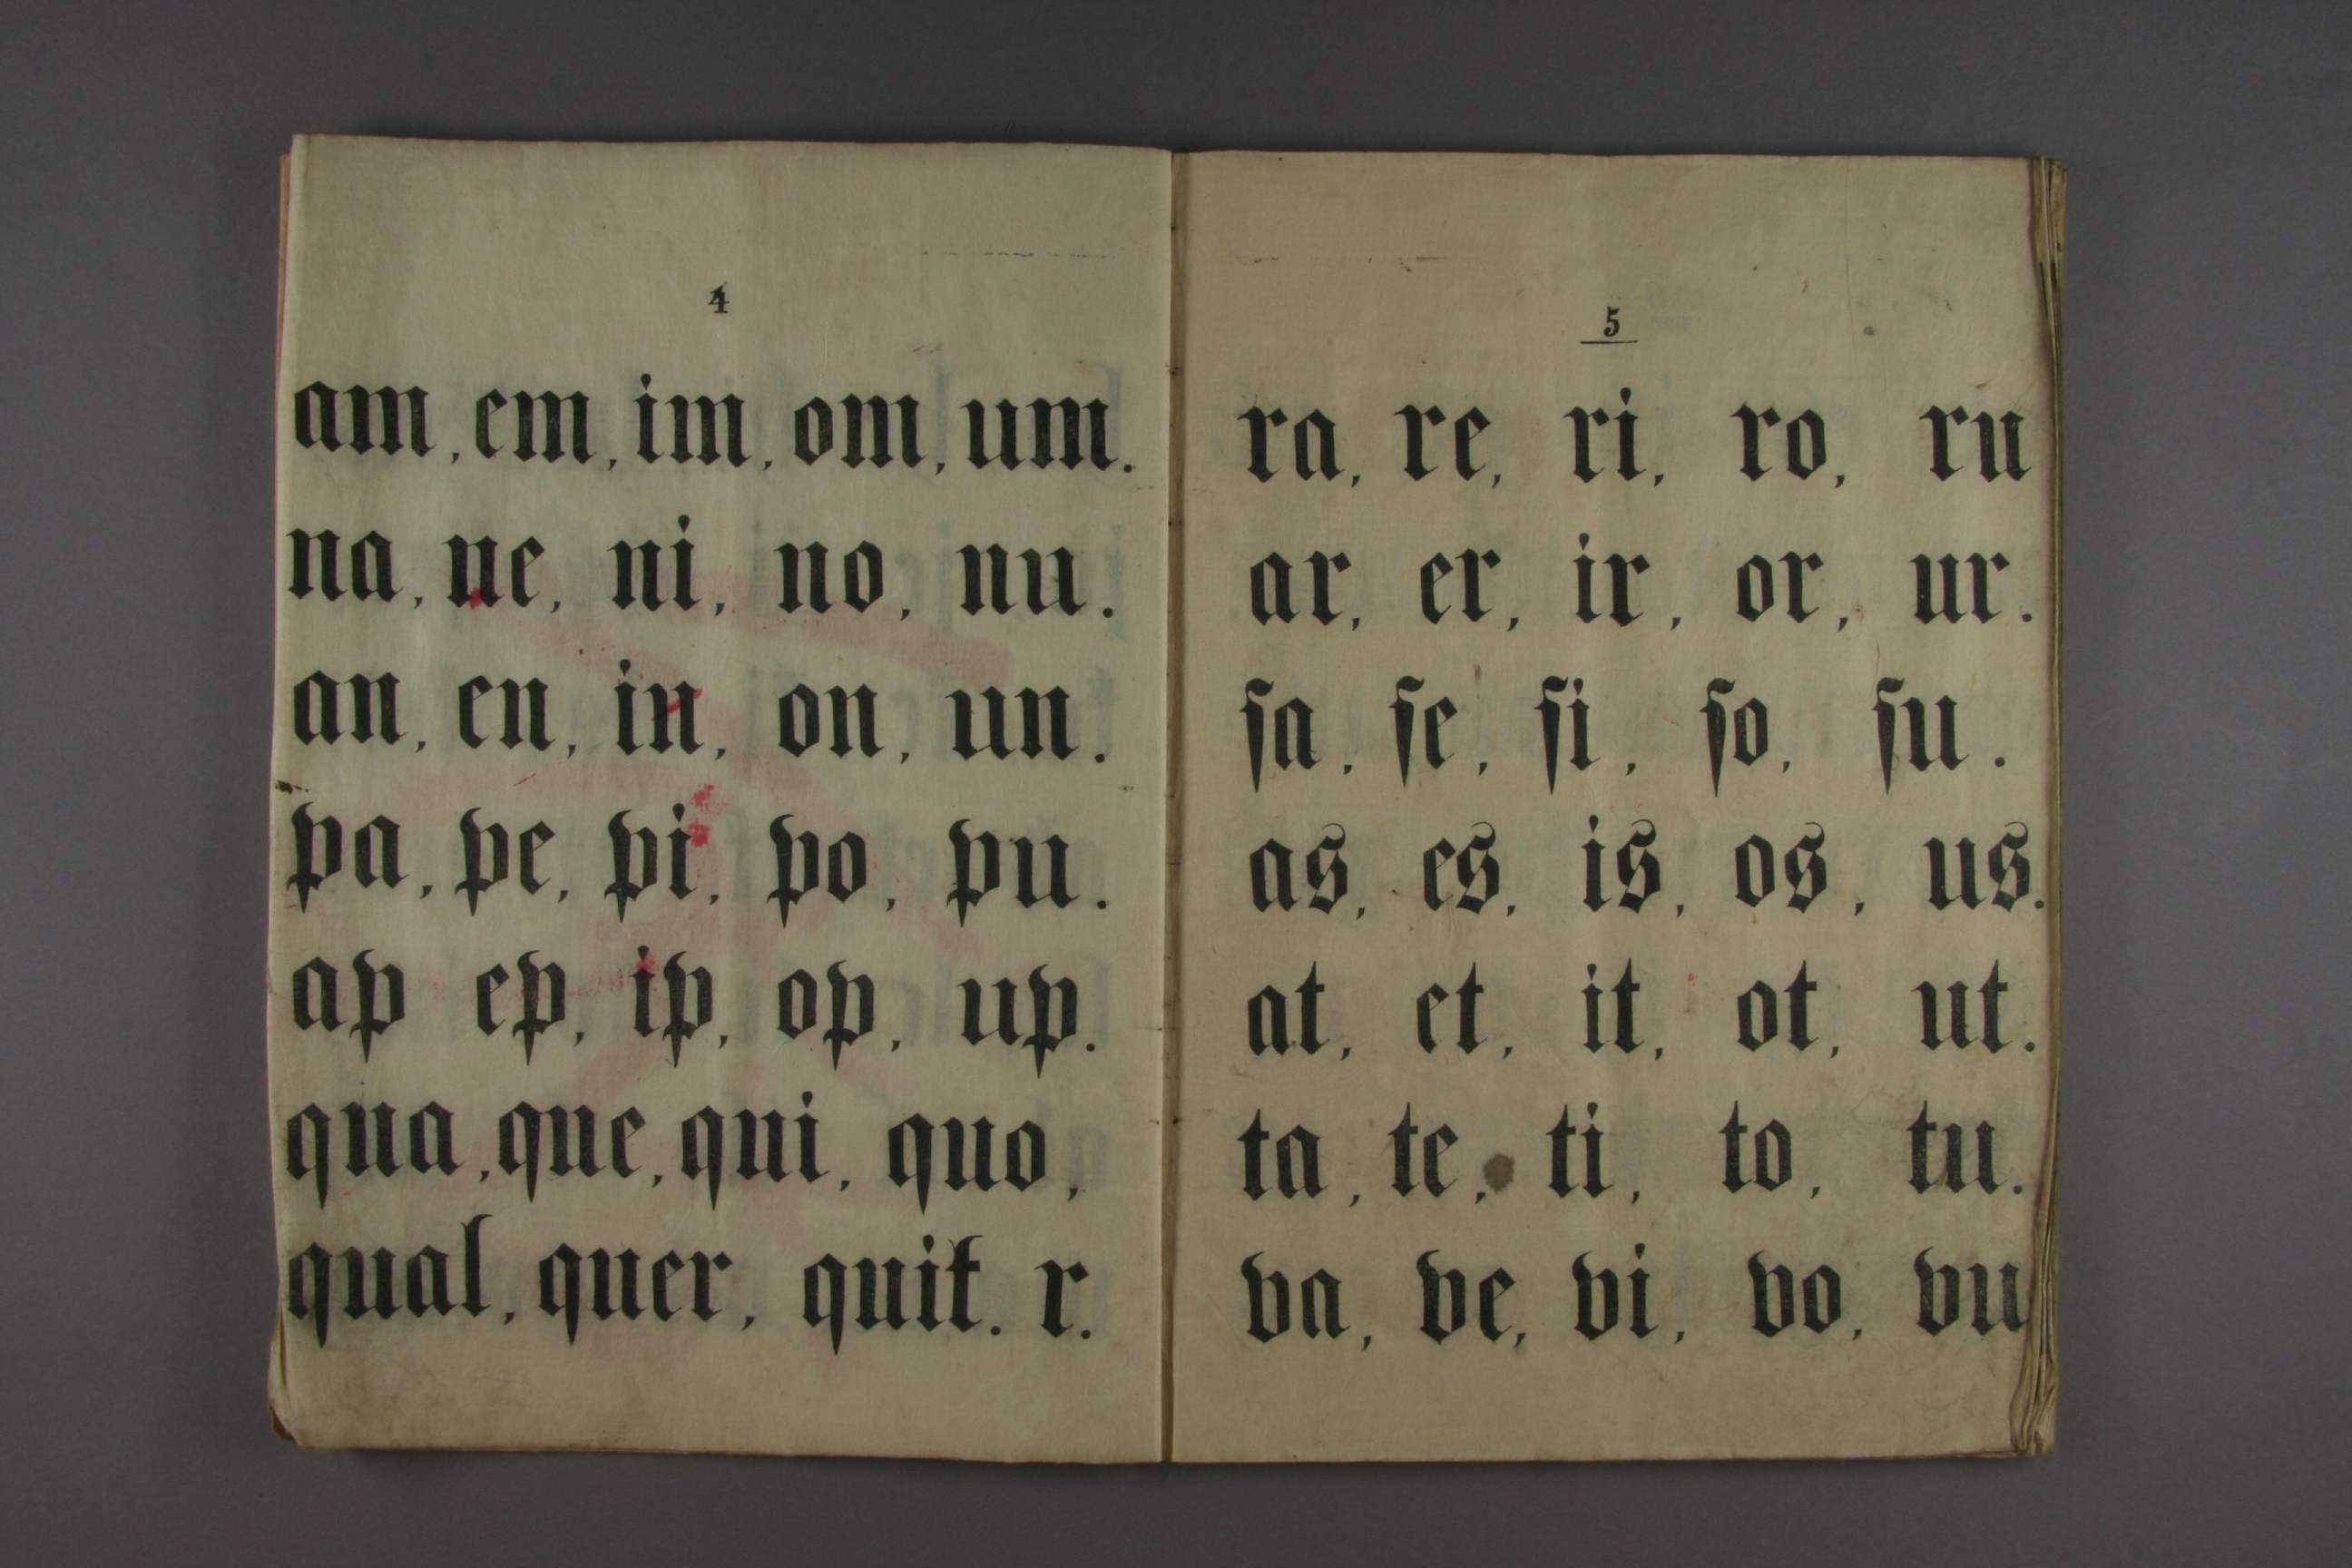 4
am, em, im, om, um.
na, ne, ni, no, nu.
an, en, in, on, un.
pa, pe, pi, po, pu.
ap ep, ip, op, up.
qua, que, qui, quo,
qual, quer, quit. r.
5
ra, re, ri, ro, ru
ar, er, ir, or, ur.
ſa, ſe, ſi, ſo, ſu.
as, es, is, os, us.
at, et, it, ot, ut.
ta, te, ti, to, tu.
va, ve, vi, vo, vu